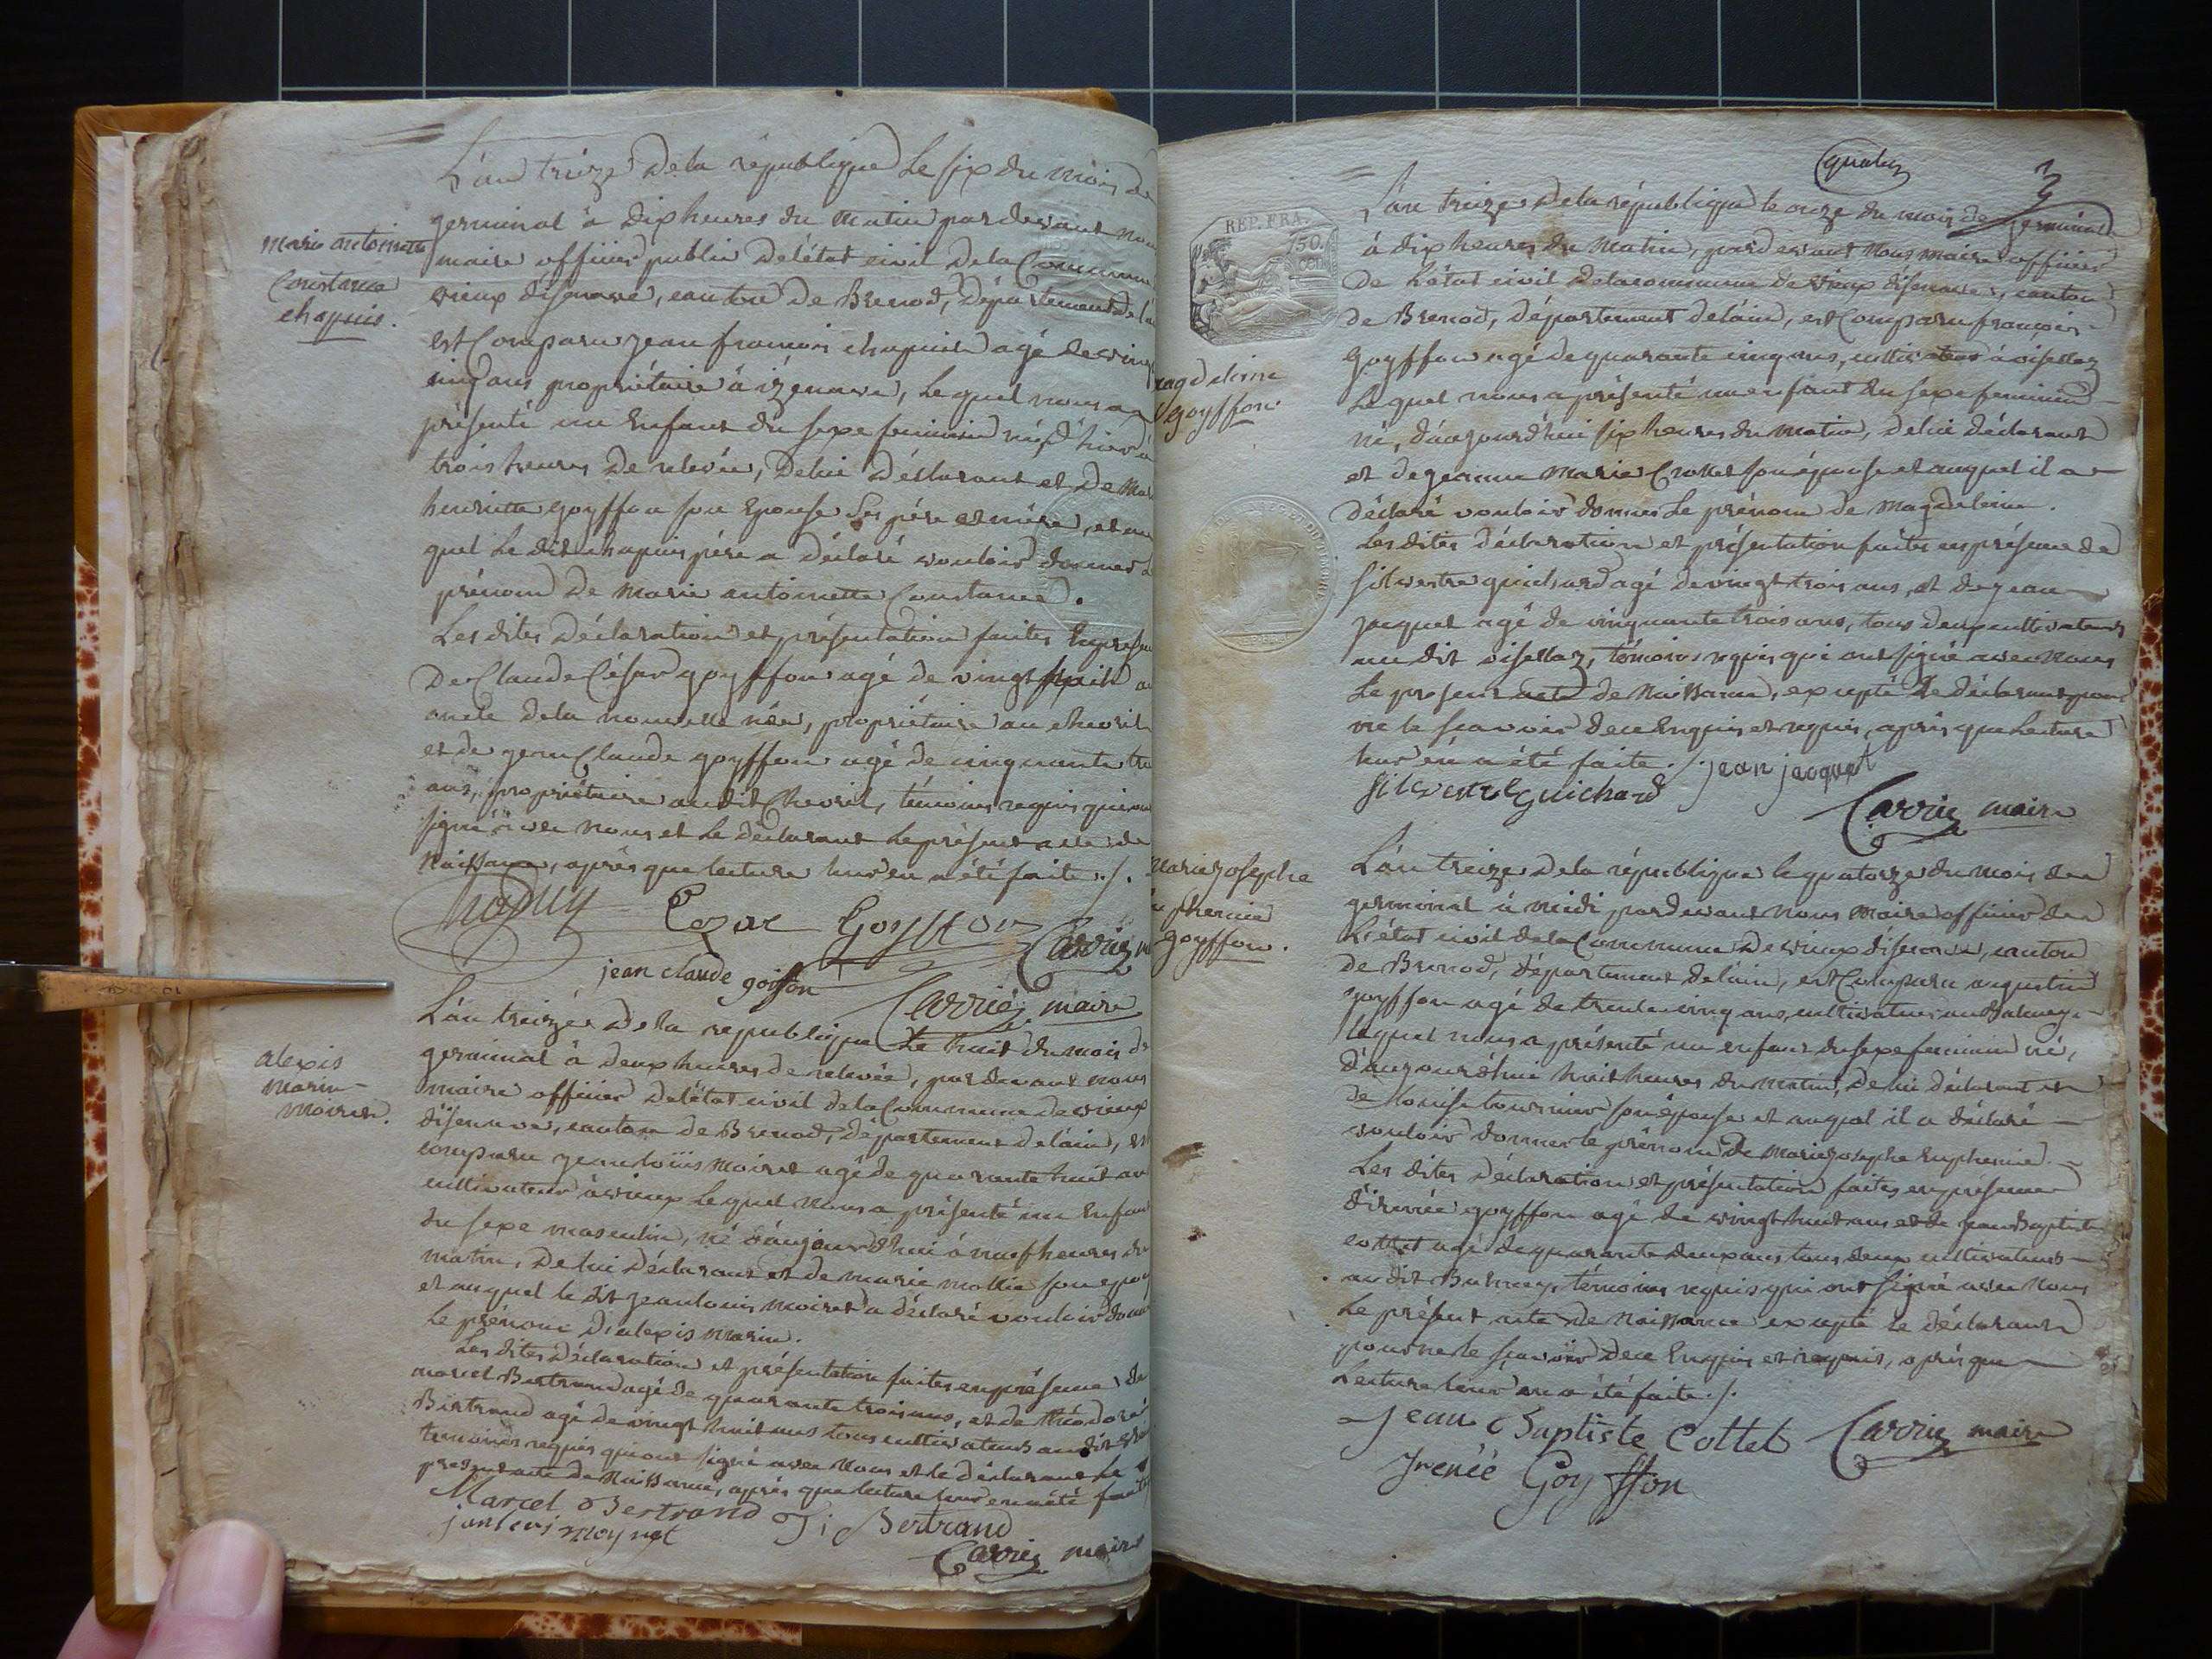 L'an treize de la république le six du mois de
germinal à dix heures du matin pardevant nous
maire officier public de l'état civil de la Commune
vieux d'isenave, canton de Brenod, département de l'ain
est Comparu jean françois chapuis agé de vingt
cinq ans propriétaire à izenave, lequel nous a
présenté un Enfant du sexe feminin né, d'hier à
trois heures de relevée, de lui déclarant et de Marie
henriette goyffon son Epouse ses père et mère, et au
quel le dit chapuis père a déclaré vouloir donner le
prénom de Marie antoinette Constance.
Les dites déclaration et présentation faites En présence
De Claude César goyffon agé de vingt huit ans
oncle de la nouvelle née, propriétaire au chevril
et de jean Claude goyffon agé de cinquante trois
ans, propriétaire audit Chevril, témoins requis qui ont
signé avec nous et le déclarant le présent acte de
Naissance, après que lecture leur en a été faite ./.
Marie antoinette
Constance
chapuis.
Chapuis Cezar Goyffon Carrier m
jean claude goiffon Carrier maire
L'an treize de la republique le huit du mois de
germinal à deux heures de relevée, pardevant nous
maire officier de l'état civil de la Commune de vieux
d'isenave, canton de Brenod, département de l'ain, est
comparu jean louis Moiret agé de quarante huit ans
cultivateur à vieux lequel nous a présenté un Enfant
du sexe masculin, né d'aujourd'hui à neuf heures du
matin, de lui déclarant et de marie mollie son epouse
et auquel le dit jean louis moiret a déclaré vouloir donner
le prénom d'alexis marin.
Les dites déclaration et présentation faites en présence de
marcel Bertrand agé de quarante trois ans, et de théodore
Bertrand agé de vingt huit ans tous cultivateurs audit vieux
temoins requis qui ont signé avec nous et le déclarant le
present acte de Naissance, après que lecture leur en a été faite
alexis
marin
Moiret.
Marcel Bertrand T: Bertrand
jan loui moyret
Carrier maire
quatre
L'an treize de la république le onze du mois de germinal
à dix heures du matin, pardevant nous maire officier
de l'état civil de la commune de vieux d'isenave, canton
de Brenod, département de l'ain, est Comparu françois
Goyffon agé de quarante cinq ans, cultivateur à oisellaz
lequel nous a présenté un enfant du sexe feminin
né, d'aujourd'hui six heures du matin, de lui déclarant
et de jeanne Marie Crottet son épouse et auquel il a
déclaré vouloir donner le prénom de Magdeleine.
Les dites déclaration et présentation faites en présence de
silvestre guichard agé de vingt trois ans, et de jean
jacquet agé de cinquante trois ans, tous deux cultivateurs
au dit oisellaz, témoins requis qui ont signé avec nous
le present acte de Naissance, excepté le déclarant pour
ne le scavoir de ce Enquis et requis, après que lecture
leur en a été faite ./. jean jacquet
Silvestre Guichard
Carrier maire
REP. FRA.
magdeleine
goyffon
L'an treize de la république le quatorze du mois de
germinal à midi pardevant nous maire officier de
l'état civil de la Commune de vieux d'isenave, canton
de Brenod, département de l'ain, est Comparu augustin
goyffon agé de trente cinq ans, cultivateur au Balmey
lequel nous a présenté un enfant du sexe feminin né,
d'aujourd'hui huit heures du matin, de lui déclarant et
de Louise tournier son épouse et auquel il a déclaré
vouloir donner le prénom de Marie josephe Euphemie.
Les dites déclaration et présentation faites en présence
d'irenée goyffon agé de vingt huit ans et de jean Baptiste
cottet agé de quarante deux ans tous deux cultivateurs
au dit Balmey, témoins requis qui ont signé avec nous
le présent acte de Naissance excepté le déclarant
pour ne le scavoir de ce Enquis et requis, après que
Lecture leur en a été faite ./.
Marie josephe
Euphemie
Goyffon.
Jean Baptiste Cottet Carrier maire
Irenée Goyffon